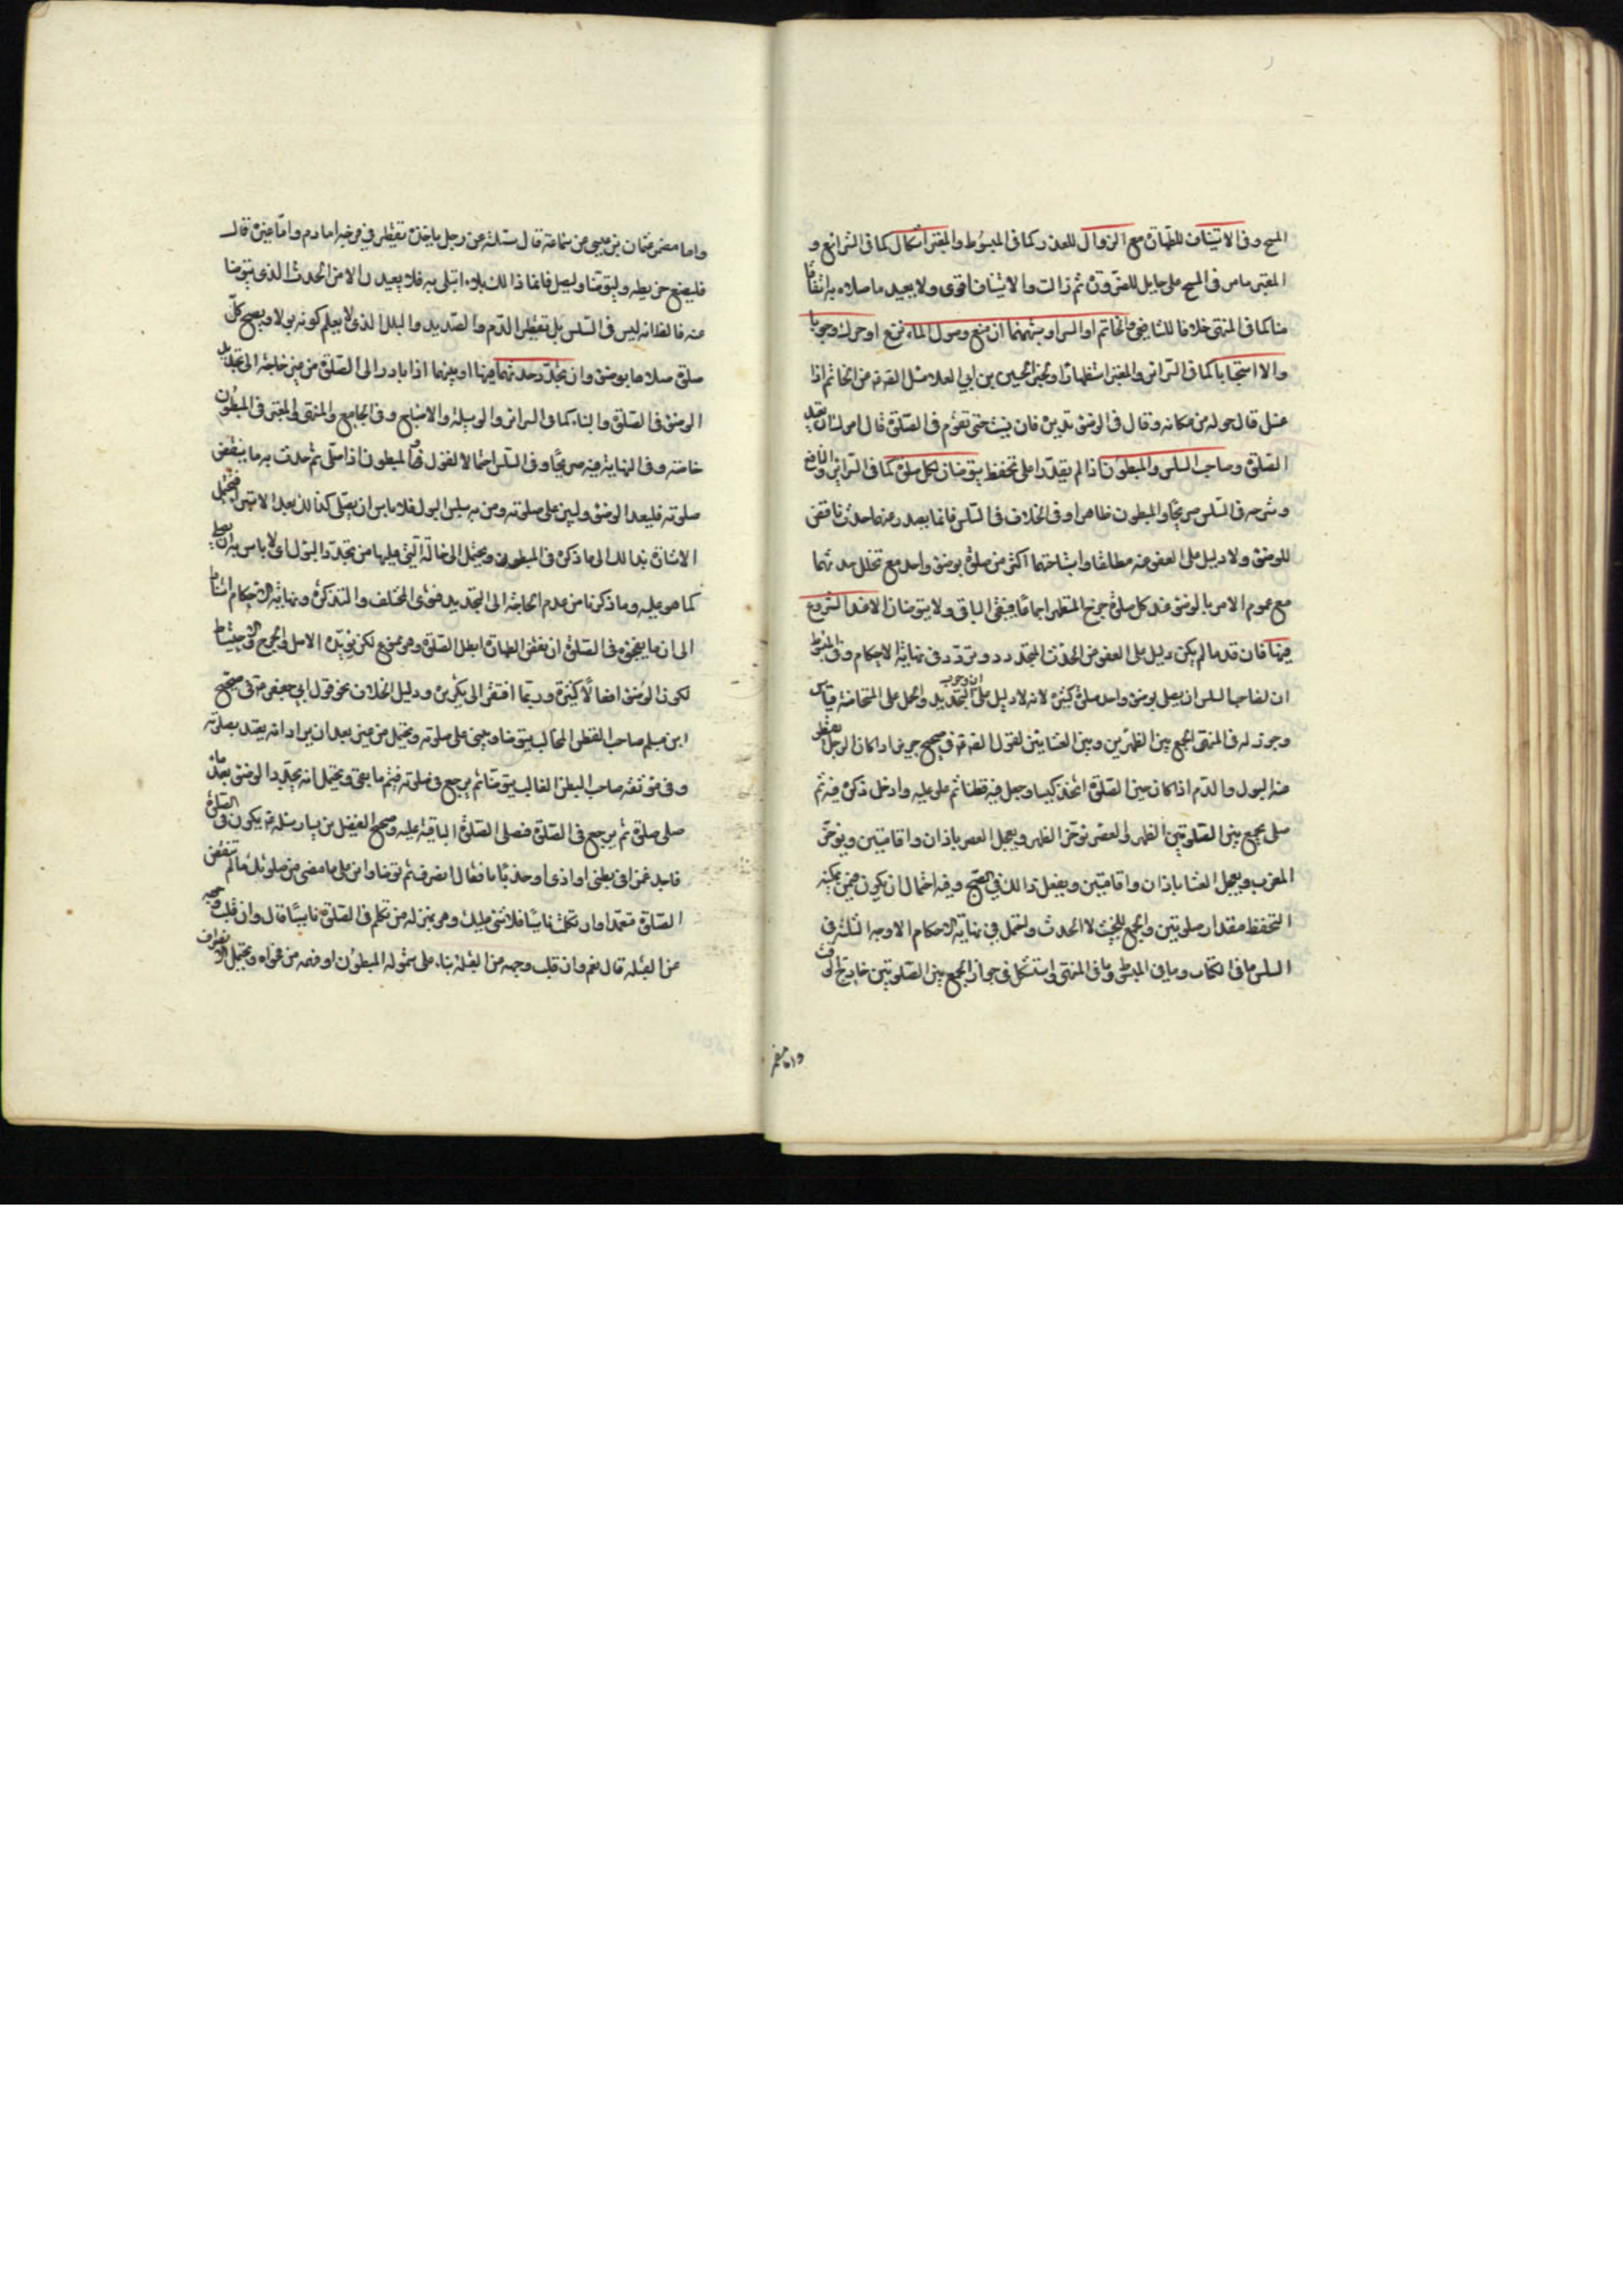 المسح وفى الاستيناف للطهارة مع الزوال للعذر كما فى المبسوط والمعتبر اشكال كما فى الشرائع و
المعتبر ما مر فى المسح على حايل للضرورة ثم زالت والاستيناف اقوى ولا يعيد ما صلاه به اتفاقا
منا كما فى المنتهى خلافا للشافعى والخاتم او السير او شبههما ان منع وصول الماء نزع او حرك وجوبا
والا استحبابا كما فى السرائر والمعتبر استظهارا ولخبر الحسين بن ابي العلا سئل الصادق عن الخاتم اذا
غسل قال حوله من مكانه وقال فى الوضوء تديره فان نسيت حتى تقوم فى الصلوة فلا امرك ان تعيد
الصلوة وصاحب السلس والمبطون اذا لم يقدرا على تحفظ يتوضان لكل صلوة كما فى السرائر والنافع
وشرحه فى السلس صريحا والمبطون ظاهرا وفى الخلاف فى السلس فانما يصدر عنهما حدث ناقض
للوضوء ولا دليل على العفو عنه مطلقا واستباحتهما اكثر من صلوة بوضوء واحد مع تخلل حدثهما
مع عموم الامر بالوضوء عند كل صلوة خرج المتطهر اجماعا فيبقى الباقى ولا يتوضان الا عند الشروع
فيها فان قدما لم يكن دليل على العفو عن الحدث المتجدد وتردد فى نهاية الاحكام وفى المبسوط
ان لصاحب السلس ان يصلى بوضوء واحد صلوة كثيرة لانه لا دليل على ان وجوب التجديد والحمل على المستحاضة قياس
وجوز له فى المنتهى الجمع بين الظهرين وبين العشائين لقول الصادق فى صحيح حريز اذا كان الرجل يقطر
منه البول والدم اذا كان حين الصلوة اتخذ كيسا وجعل فيه قطنا ثم علقه عليه وادخل ذكره فيه ثم
صلى يجمع بين الصلوتين الظهر والعصر يؤخر الظهر ويعجل العصر باذان واقامتين ويؤخر
المغرب ويعجل العشا باذان واقامتين ويفعل ذلك فى الصبح وفيه احتمال ان يكون فيمن يمكنه
التحفظ مقدار صلوتين والجمع للخبث لا الحدث واحتمل فى نهاية الاحكام الاوجه الثلثة فى
السلس ما فى الكتاب وما فى المبسوط وما فى المنتهى واستشكل فى جواز الجمع بين الصلوتين خارج الوقت
واما مضمر
واما مضمر عثمان بن عيسى عن سماعة قال سئلته عن رجل ياخذه تقطير فى فرجه اما دم واما غيره قال
فليضع خريطة وليتوضا وليصل فانما ذالك بلاء ابتلى به فلا يعيدن الا من الحدث الذى يتوضا
منه فالظ انه ليس فى السلس بل تقطير الدم والصديد والبلل الذى لا يعلم كونه بولا ويصح كل
صلوة صلاها بوضوء وان تجدد حدثهما فيها او بينها اذا بادر الى الصلوة من غير حاجة الى تجديد
الوضوء فى الصلوة والبناء كما فى السرائر والوسيلة والاصباح وفى الجامع والمنتهى والمعتبر فى المبطون
خاصة وفى النهاية فيه صريحا وفى السلس احتمالا لقول ص المبطون اذا صلى ثم حدث به ما ينقض
صلوته فليعد الوضوء وليبن على صلوته ومن به سلس البول فلا باس ان يصلى كذالك بعد الاستبراء فيحتمل
الاشارة بذالك الى ما ذكره فى المبطون ويحتمل الى الحالة التى عليها من تجدد البول اى لا باس به ان يصلى
كما هو عليه وما ذكرنا من عدم الحاجة الى التجديد فتوى المختلف والتذكرة ونهاية الاحكام استنادا
الى ان ما ينجزه فى الصلوة ان نقض الطهارة ابطل الصلوة وهو ممنوع لكن يؤيده الاصل والحرج والاحتياط
لكون الوضوء افعالا كثيرة وربما افتقر الى كثيرة ودليل الخلاف نحو قول ابي جعفر فى صحيح
ابن مسلم صاحب البطن الغالب يتوضا ويبنى على صلوته ويحتمل من غير بعد ان يراد انه يعتد بصلوته
وفى موثقه صاحب البطن الغالب يتوضا ثم يرجع فى صلوته فيتم ما بقى ويحتمل انه يجدد الوضوء بعد ما
صلى صلوة ثم يرجع فى الصلوة فصلى الصلوة الباقية عليه وصحيح الفضيل بن يسار سئله يكون فى الصلوة
فاجد غمزا فى بطنى او اذى او ضربانا فقال انصرف ثم توضا وابن على ما مضى من صلوتك ما لم تنقض
الصلوة متعمدا وان تكلمت ناسيا فلا شئ عليك وهو بمنزله من تكلم فى الصلوة ناسيا قال وان قلب وجهه
عن القبلة قال نعم وان قلب وجهه عن القبلة بناء على شموله المبطون او فهمه من فحواه ويحتمل الانصراف